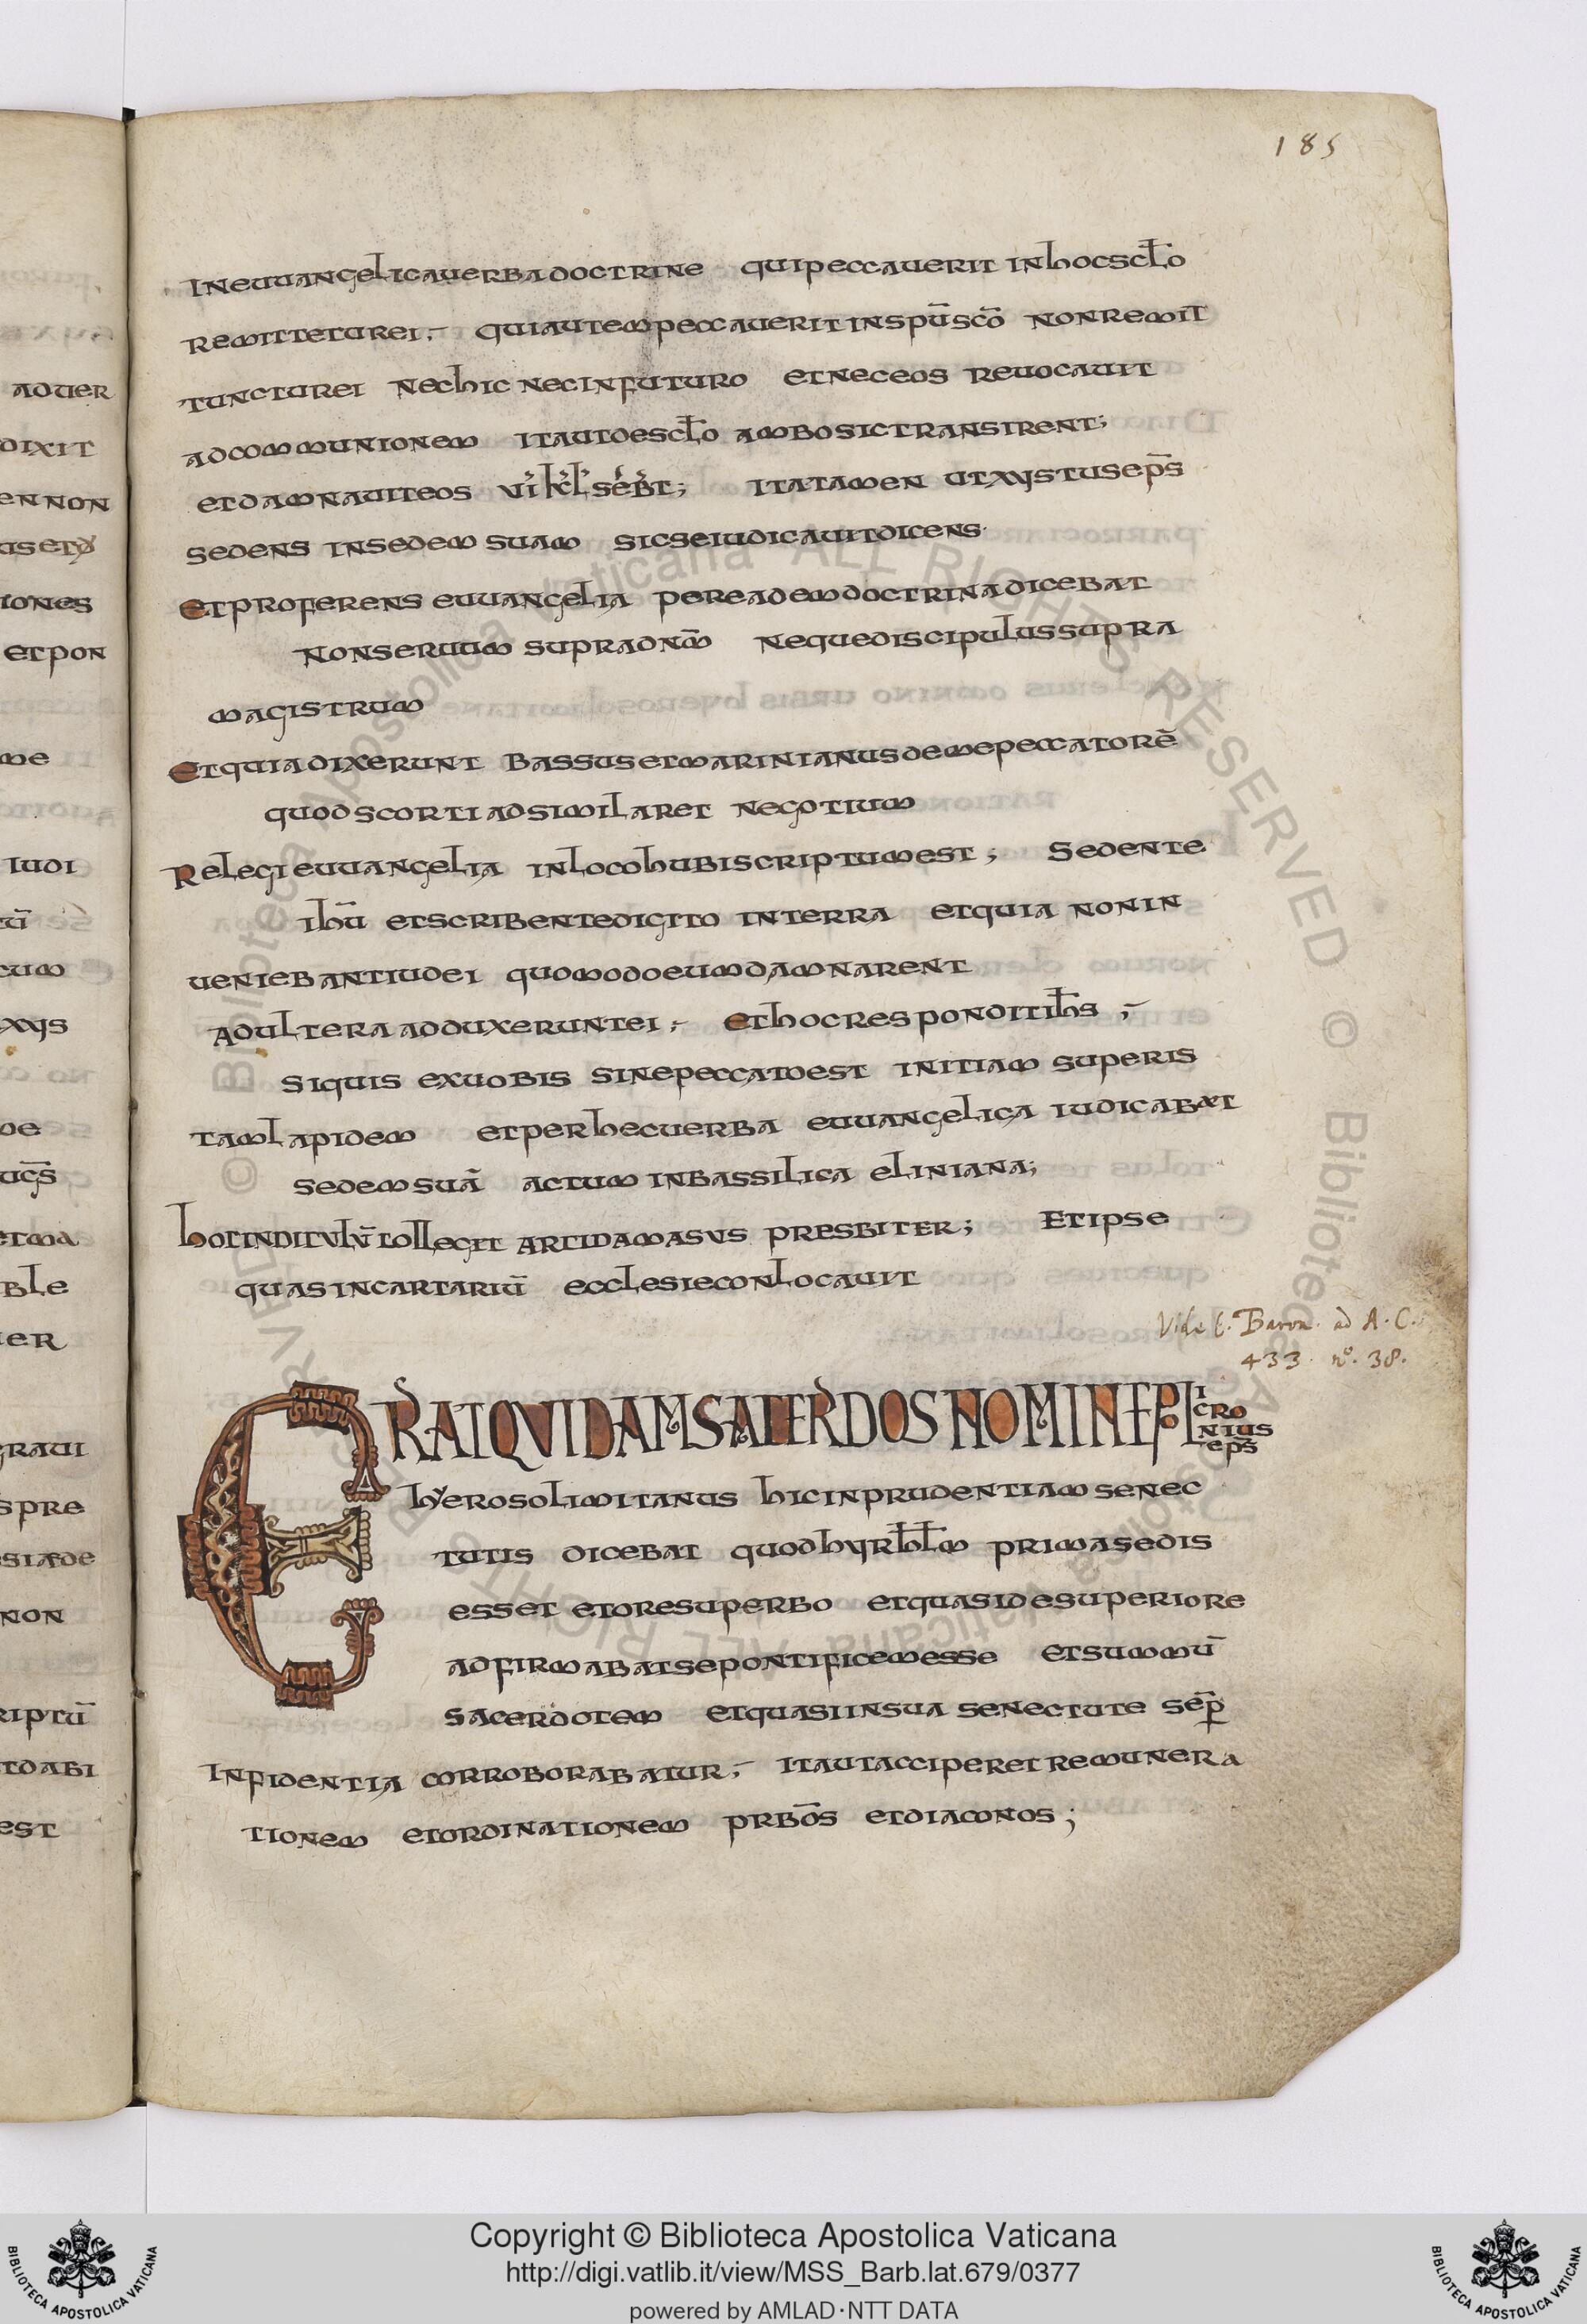 185
aduer
dixit
en non
us et
iones
et pon
me
iudi
cum
xxys
ucs̄
et ma
ble
uer
graui
s pre
siæ de
non
riptū
t dabi
est
in euuangelica uerba doctrine qui peccauerit in hoc scl̄o
remittetur ei;- qui autem peccauerit in spū scō non remit
tunctur ei nec hic nec in futuro et nec eos reuocauit
ad commonionem ita ut de scl̄o ambo sic transirent;
et damnauit eos vi kl septbr; ita tamen ut xystus ep̄s
sedens in sedem suam sic se iudicauit dicens
et proferens euuangelia per eadem doctrina dicebat
non seruum supra dnm̄ neque discipulus supra
magistrum
et quia dixerunt bassus et marinianus de me peccatorē
quod scorti adsimilaret negotium
relegi euuangelia in loco hubi scriptum est; sedente
ihū et scribente digito in terra et quia non in
ueniebant iudei quomodo eum damnarent
adultera adduxerunt ei;- et hoc respondit ih̄s;-
si quis ex uobis sine peccato est initiam super is
tam lapidem et per hec uerba euuangelica iudicabæt
sedem suā actum in bassilica eliniana;
hoc inditulū collegit arcidamasus presbiter; et ipse
quas in cartariū ecclesie conlocauit
Vide C. Baron. ad A. C.
433. no. 38.
ERAT QVIDAM SACERDOS NOMINE POLICRONIUS ep̄s
hyerosolimitanus hic inprudentiam senec
tutis dicebat quod hyrhl̄m prima sedis
esset et ore superbo et quasi de superiore
adfirmabat se pontificem esse et summū
sacerdotem et quasi in sua senectute sep̄
in fidentia corroborabatur;- ita ut acciperet remunera
tionem et ordinationem prb̄os et diaconos;
Copyright © Biblioteca Apostolica Vaticana
http://digi.vatlib.it/view/MSS_Barb.lat.679/0377
powered by AMLAD·NTT DATA
BIBLIOTECA APOSTOLICA VATICANA
BIBLIOTECA APOSTOLICA VATICANA
© Biblioteca Apostolica Vaticana ALL RIGHTS RESERVED © Biblioteca Apostolica Vaticana ALL RIGHTS RESERVED